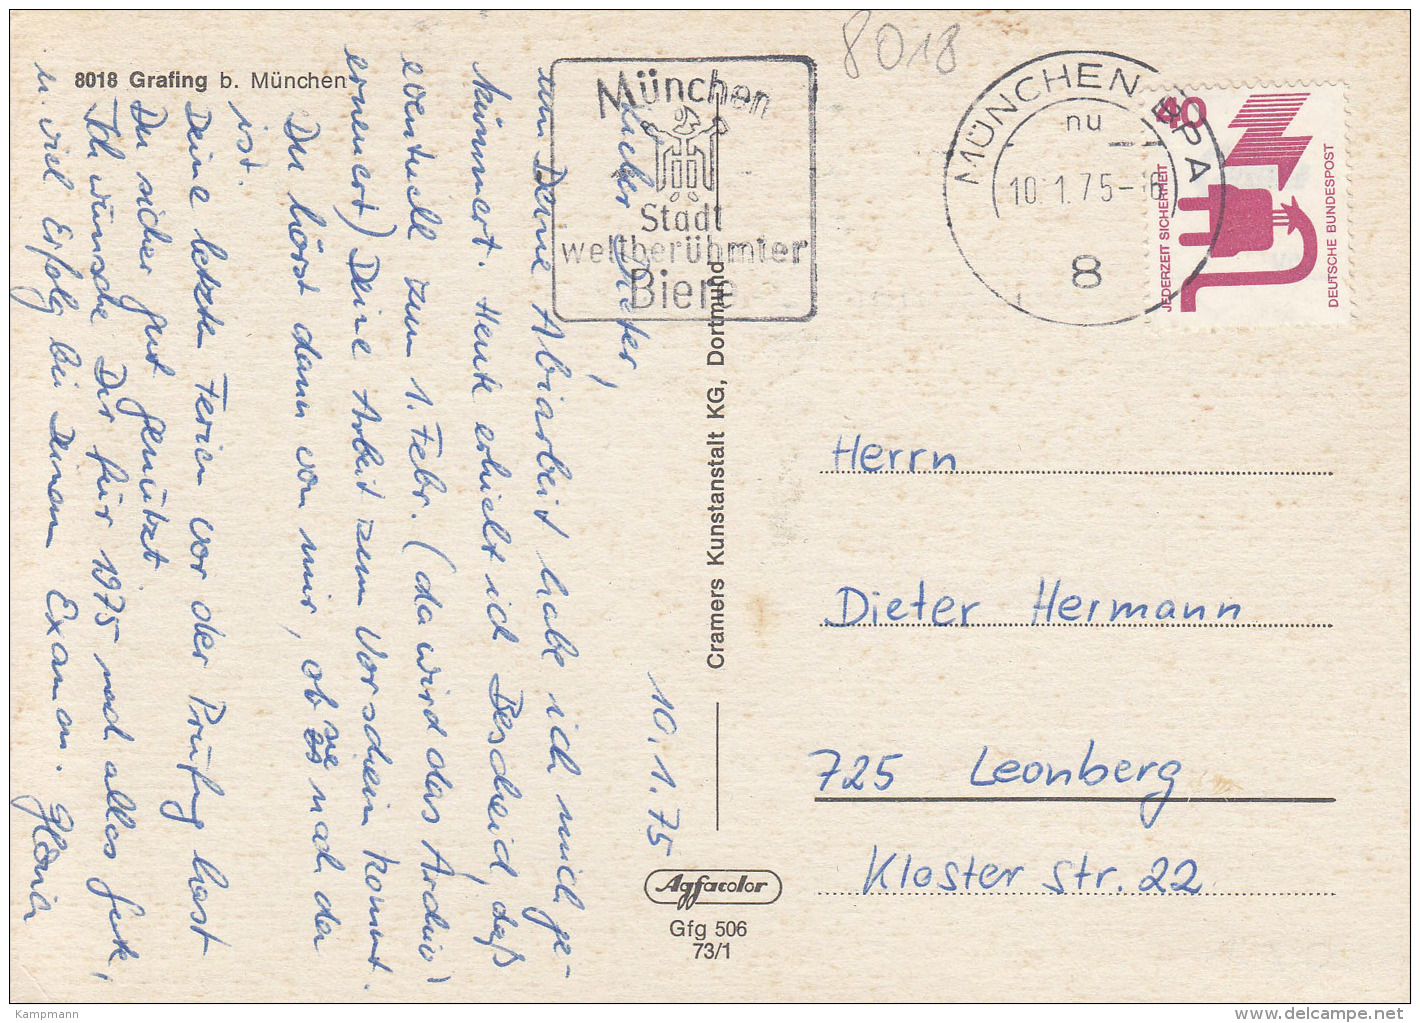 8018 Grafing b. München
8018
München
Stadt
weltberühmter
Biere
MÜNCHEN BPA
nu
10.1.75-16
8
40
JEDERZEIT SICHERHEIT
DEUTSCHE BUNDESPOST
10.1.75
Lieber Dieter,
um Deine Abiarbeit habe ich mich ge-
kümmert. Heute erhielt ich Bescheid, daß
eventuell zum 1. Febr. (da wird das Archiv
erneuert) Deine Arbeit zum Vorschein kommt.
Du hörst dann von mir, ob sie noch da
ist.
Deine letzten Ferien vor der Prüfung hast
Du sicher gut genützt.
Ich wünsche Dir für 1975 noch alles Gute,
u. viel Erfolg bei Deinem Examen. Gloria
Cramers Kunstanstalt KG, Dortmund
Agfacolor
Gfg 506
73/1
Herrn
Dieter Hermann
725 Leonberg
Kloster Str. 22
Kampmann
www.delcampe.net